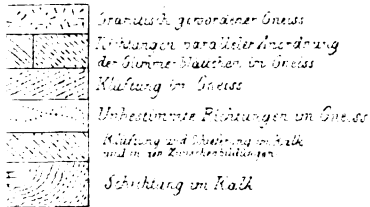 Granitisch gewordener Gneiss
Richtungen paralleler Anordnung
der Glimmer blättchen im Gneiss
Klüftung im Gneiss
Unbestimmte Richtungen im Gneiss
Klüftung und Schieferung im Kalk
und in den Zwischenbildungen
Schichtung im Kalk